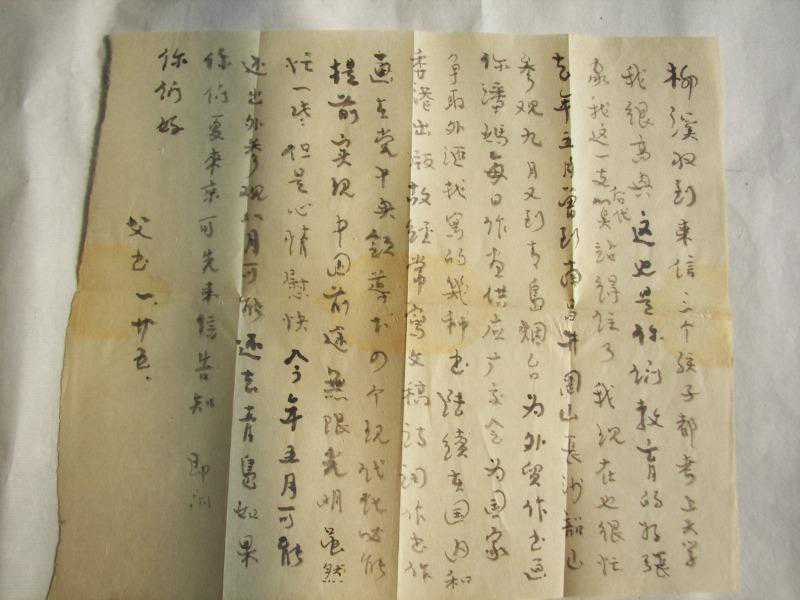 柳溪收到来信三个孩子都考上大学
我很高兴 这也是你们教育的好 張
家我这一支后代算站得住了 我现在也很忙
去年五月曾到南昌井岡山長沙韶山
参观九月又到青島烟台为外贸作书画
你潘媽每日作画供应广交会为国家
争取外汇我写的幾种书陸續在国内和
香港出版故經常寫文稿詩词作书作
画在党中央領導下四个现代化必能
提前实现 中国前途無限光明 虽然
忙一些 但是心情慰快 今年五月可能
还出外参观八月可能还去青島如果
你们夏来京可先来信告知 即问
你们好
父书 一.廿五.